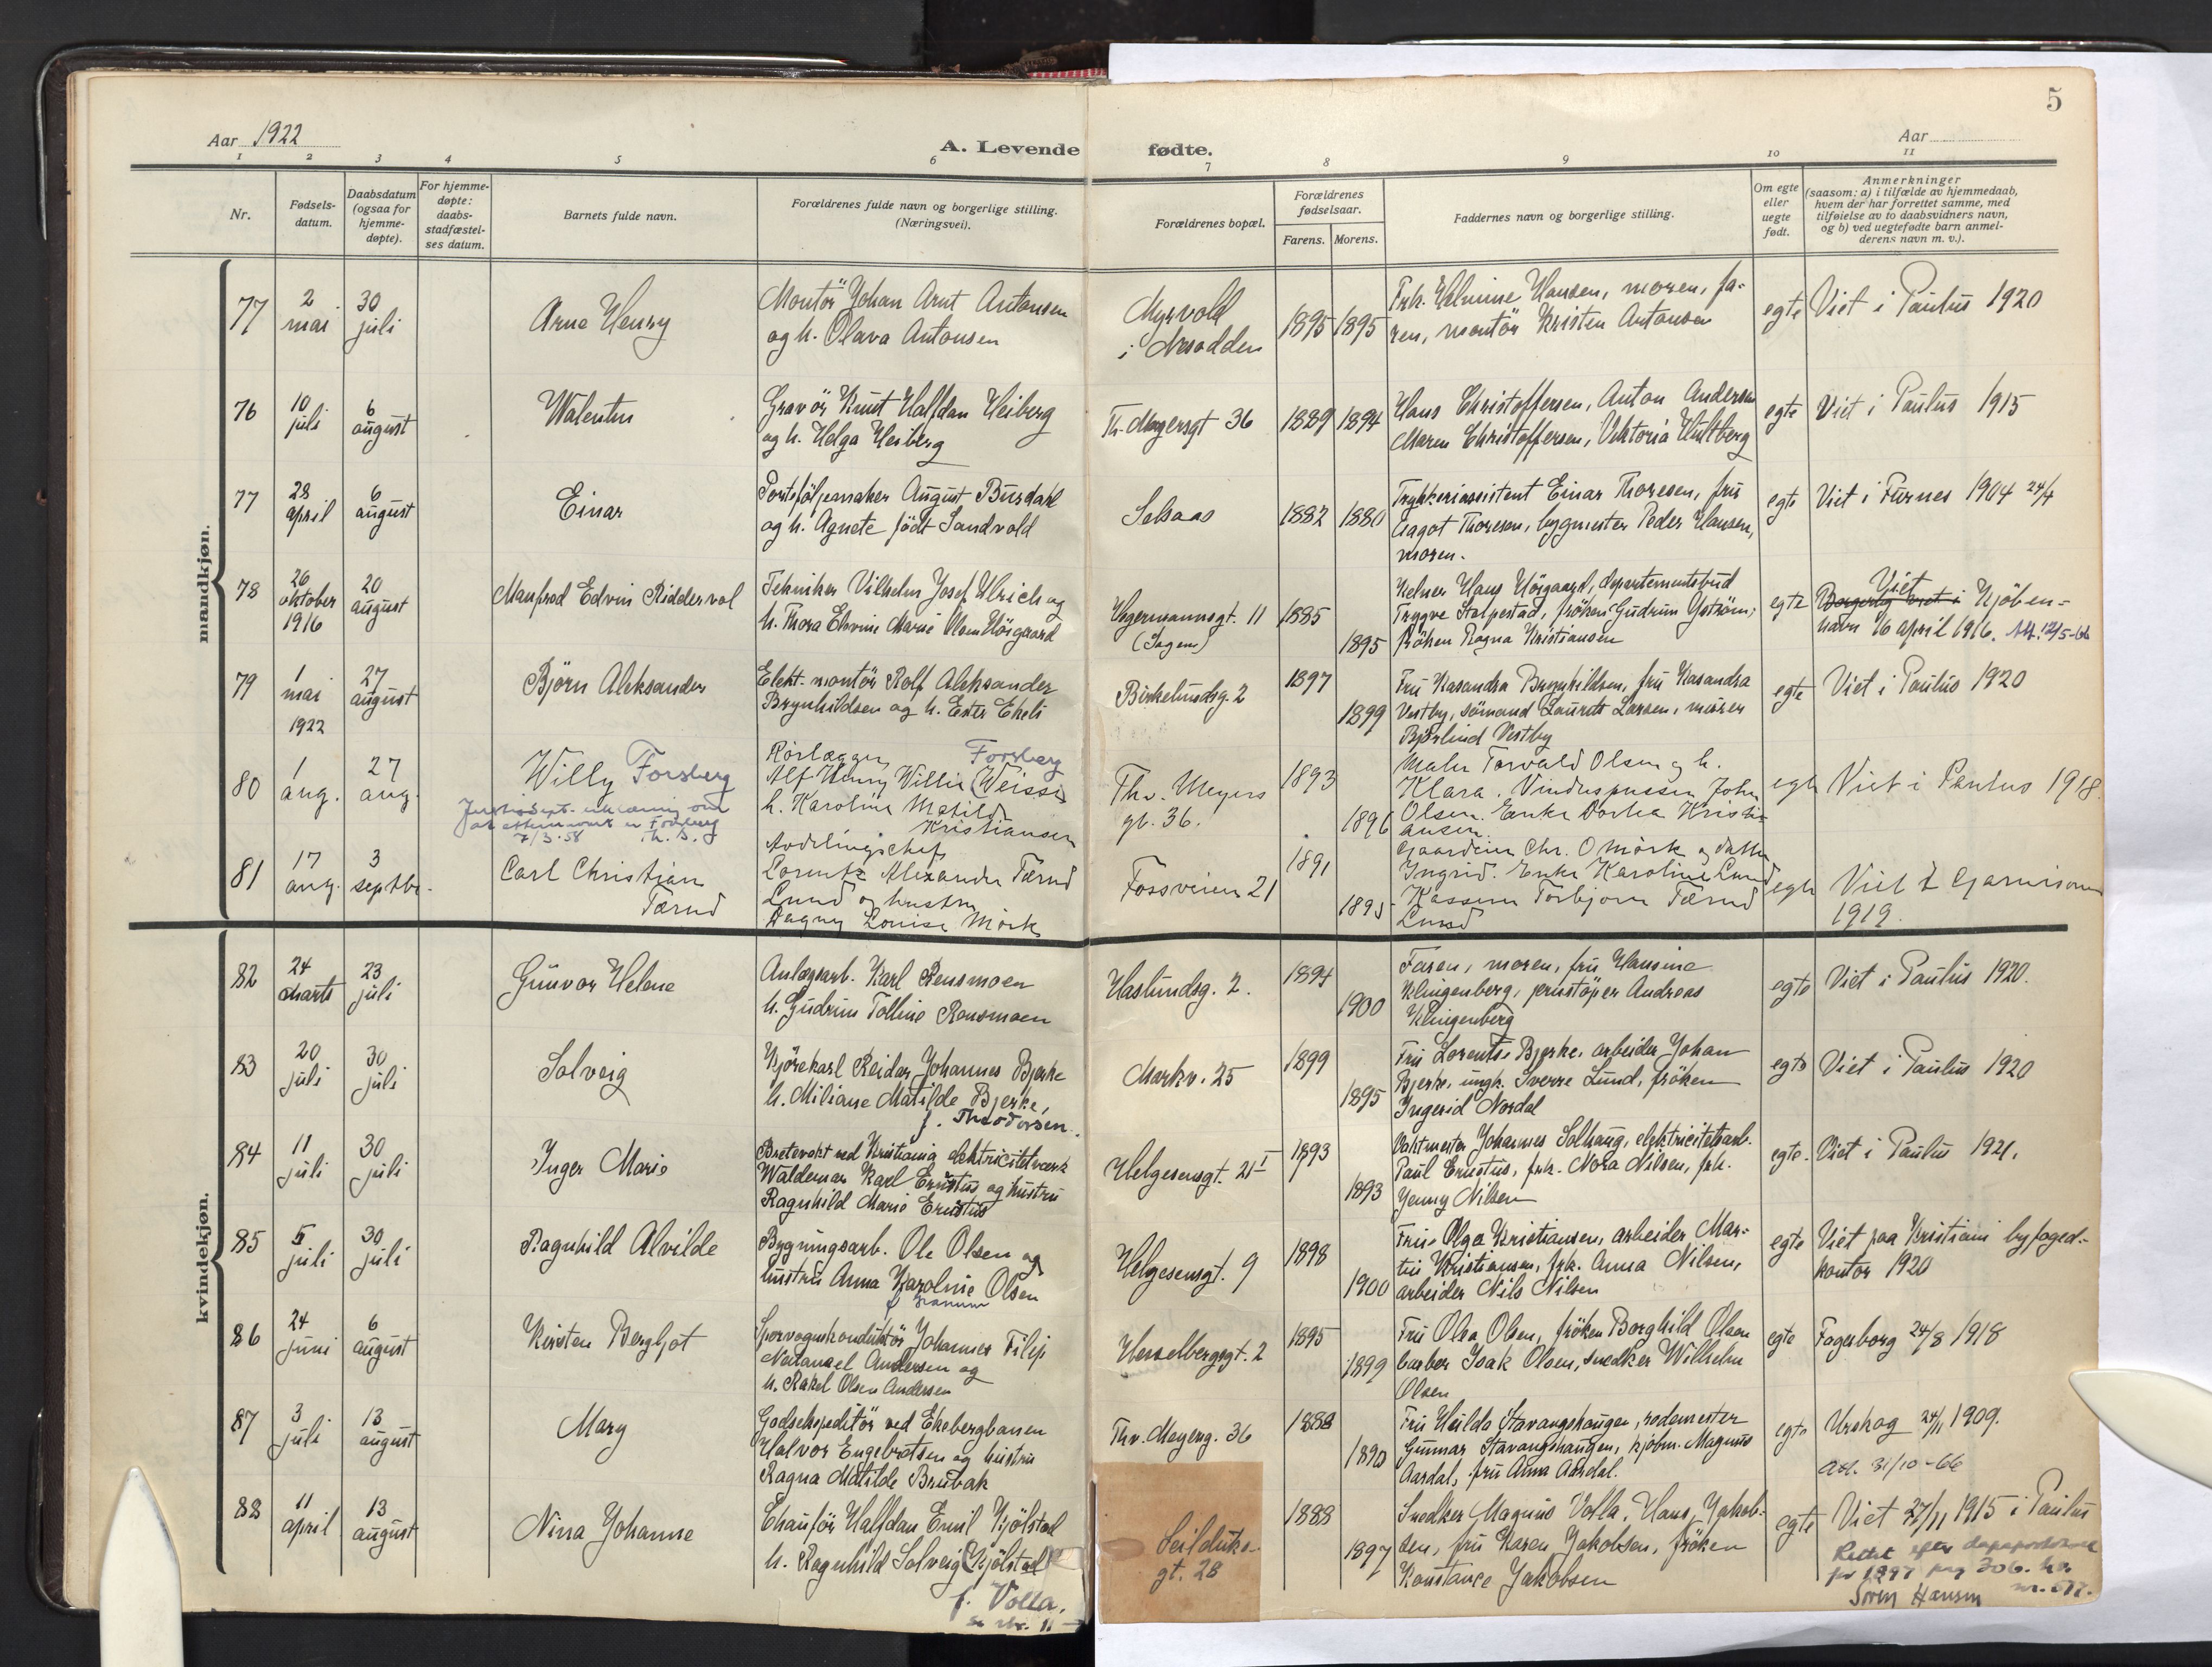 5
Aar 1922
A. Levende fødte.
Aar
1 2 3 4 5 6 7 8 9 10 11
Nr.
Fødsels-
datum.
Daabsdatum
(ogsaa for
hjemme-
døpte).
For hjemme-
døpte:
daabs-
stadfæstel-
ses datum.
Barnets fulde navn.
Forældrenes fulde navn og borgerlige stilling.
(Næringsvei).
Forældrenes bopæl.
Forældrenes
fødselsaar.
Farens. Morens.
Faddernes navn og borgerlige stilling.
Om egte
eller
uegte
født.
Anmerkninger
(saasom: a) i tilfælde av hjemmedaab,
hvem der har forrettet samme, med
tilføielse av to daabsvidners navn,
og b) ved uegtefødte barn anmel-
derens navn m. v.).
mandkjøn.
77
2
mai
30
juli
Arne Henry
Montör Johan Arnt Antonsen
og h. Olava Antonsen
Myrvold
i Nesodden
1895 1895
Frk. Helmine Hansen, moren, fa-
ren, montör Kristen Antonsen
egte
Viet i Paulus 1920
76
10
juli
6
august
Walentin
Gravör Knut Halfdan Heiberg
og h. Helga Heiberg
Th. Meyersgt 36
1889 1894
Hans Christoffersen, Anton Andersen
Maren Christoffersen, Viktoria Hultberg
egte
Viet i Paulus 1915
77
28
april
6
august
Einar
Porteföljemaker August Burdahl
og h. Agnete födt Sandvold
Selsaas
1882 1880
Trykkeriassistent Einar Thoresen, fru
Dagot Thoresen, bygmester Peder Hansen,
moren.
egte
Viet i Furnes 1904 24/4
78
26
oktober
1916
20
august
Manfred Edvin Ridderval
Tekniker Vilhelm Josef Ulrich og
h. Thora Elvine Marie Olsen Hörgaard
Hegermannsgt. 11
(Sagene)
1885
1895
Kelner Hans Hörgaard, departementsbud
Trygve Stolpestad, fröken Gudrun Yström,
fröken Ragna Kristiansen
egte
Viet
Borgerlig viet i Kjöben-
havn 16 april 1916. Att. 12/5-66
79
1
mai
1922
27
august
Björn Aleksander
Elekt. montör Rolf Aleksander
Brynhildsen og h. Ester Ekeli
Birkelundsg. 2
1897
1899
Fru Kasandra Brynhildsen, fru Kasandra
Vestby, sömand Laurits Larsen, murer
Bjerlind Vestby
egte
Viet i Paulus 1920
80
1
aug.
27
aug.
Willy Forsberg
7/3-58 Th. S.
Rörlægger Forsberg
Alf Henry Willie (Weisse)
h. Karoline Matilde
Kristiansen
Thv. Meyers
gt. 36.
1893
1896
Maler Torvald Olsen og h.
Klara. Vinduspusser John
Olsen. Enke Dorthea Kristi-
ansen.
egte
Viet i Paulus 1918.
81
17
aug.
3
septbr.
Carl Christian
Tærud
Avdelingschef
Lorentz Alexander Tærud
Lund og hustru
Dagny Louise Mörk
Fossveien 21
1891
1895
Gaardeier Chr. O Mörk og datter
Ingrid. Enke Karoline Lund
Kasserer Torbjørn Tærud
Lund
egte
Viet i Garnisonen
1919.
kvindekjøn.
82
24
marts
23
juli
Gunvor Helene
Anlægsarb. Karl Rensmoen
h. Gudrun Tolline Rensmoen
Haslundsg. 2.
1894
1900
Faren, moren, fru Hansine
Klingenberg, jernstöper Andreas
Klingenberg
egte
Viet i Paulus 1920.
83
20
juli
30
juli
Solveig
Kjörekarl Reidar Johannes Bjerke
h. Miliane Matilde Bjerke,
f. Theodorsen.
Markv. 25
1899
1895
Fru Lorentse Bjerke, arbeider Johan
Bjerke, ungk. Sverre Lund, fröken
Ingerid Nordal
egte
Viet i Paulus 1920
84
11
juli
30
juli
Inger Marie
Brettevakt ved Kristiania elektricitetsverk
Waldemar Karl Ernstus og hustru
Ragnhild Marie Ernstus
Helgesensgt. 21 I
1893
1893
Vaktmester Johannes Solhaug, elektricitetsarb.
Paul Ernstus, frk. Nora Nilsen, frk.
Jenny Nilsen
egte.
Viet i Paulus 1921.
85
5
juli
30
juli
Ragnhild Alvilde
Bygningsarb. Ole Olsen og
hustru Anna Karoline Olsen
f. Granum
Helgesensgt. 9
1898
1900
Fru Olga Kristiansen, arbeider Mar-
tin Kristiansen, frk. Anna Nilsen,
arbeider Nils Nilsen
egte
Viet paa Kristiani byfoged-
kontor 1920
86
24
juni
6
august
Kirsten Bergljot
Sporvognskonduktör Johannes Filip
Natanael Andersen og
h. Rakel Olsen Andersen
Hesselbergsgt. 2
1895
1899
Fru Olva Olsen, fröken Borghild Olsen
barber Isak Olsen, snedker Wilhelm
Olsen
egte
Fagerborg 24/8 1918
87
3
juli
13
august
Mary
Godsekspeditör ved Ekebergbanen
Halvor Engebretsen og hustru
Ragna Matilde Brubak
Thv. Meyersg. 36
1888
1890
Fru Hilda Stavangshaugen, rodemester
Gunnar Stavangshaugen, kjöbm. Magnus
Aardal, fru Anna Aardal.
egte
Urskog 24/11 1909.
Att. 31/10-66
88
11
april
13
august
Nina Johanne
Chauför Halfdan Emil Kjölstad
h. Ragnhild Solveig (Kjölstad)
f. Volla.
Seilduks-
gt. 28
1888
1897
Snedker Magnus Volla, Hans Jakob-
sen, fru Karen Jakobsen, fröken
Konstance Jakobsen
egte
Viet 27/11 1915 i Paulus
Rettet efter daapsprotokoll
for 1897 pag 306.
Søren Hansen